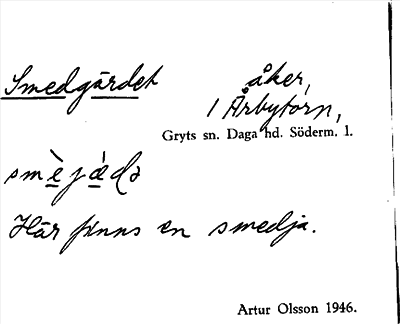 Smedgärdet åker,
1 Årbytorn,
Gryts sn. Daga hd. Söderm. l.
smè̱jǽ̱də
Här finns en smedja.
Artur Olsson 1946.